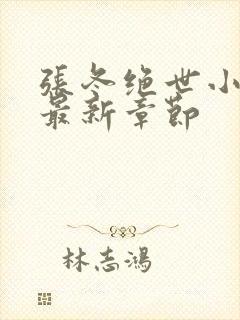 張冬绝世小
最新章節
林志鴻